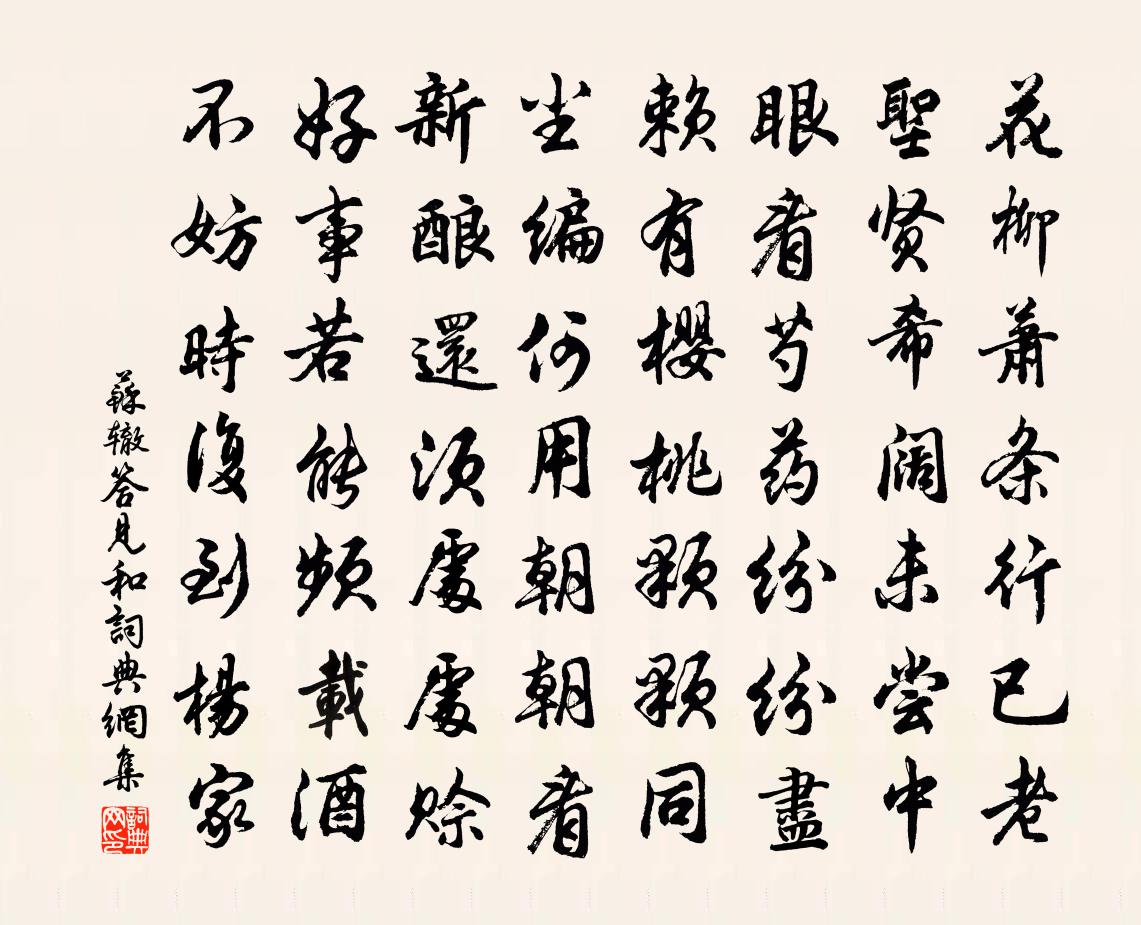 花柳萧条行已老
聖贤希阔未尝中
眼看芍药纷纷盡
赖有櫻桃颗颗同
尘编何用朝朝看
新酿還须處處赊
好事若能频載酒
不妨時復到楊家
蘇辙答見和詞典網集
詞典网印